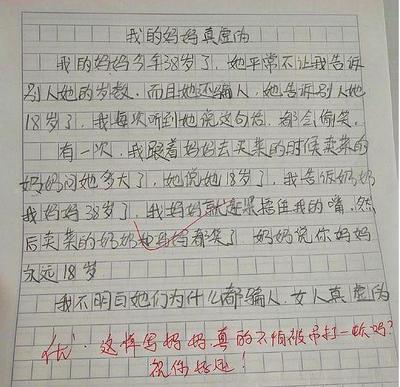 我的妈妈真虚伪
我的妈妈今年38岁了，她平常不让我告诉
别人她的岁数，而且她还编人，她告诉别人她
18岁了，我每次听到她说这句话，都会偷笑。
有一次，我跟着妈妈去买菜的时候卖菜的
奶奶问她多大了，她说她18岁了，我告诉奶奶
我妈妈38岁了，我妈妈就赶紧捂住我的嘴，然
后卖菜的奶奶和妈妈都笑了 妈妈说你妈妈
永远18岁
我不明白她们为什么都编人，女人真虚伪
优：这样写妈妈，真的不怕被吊打一顿吗？
祝你好运！